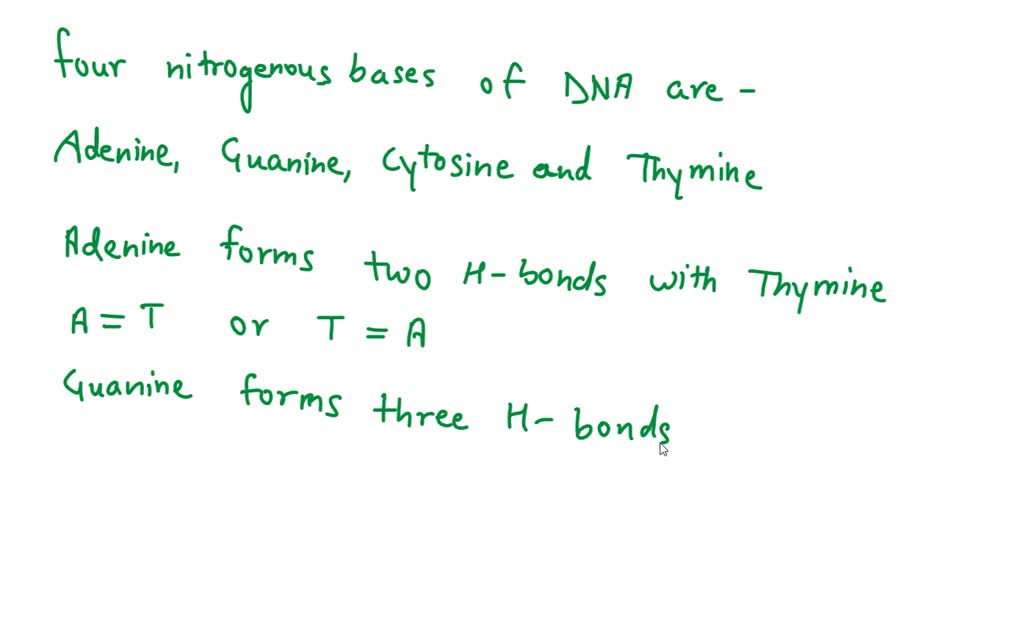 four nitrogenous bases of DNA are -
Adenine, Guanine, Cytosine and Thymine
Adenine forms two H-bonds with Thymine
A = T or T = A
Guanine forms three H- bonds